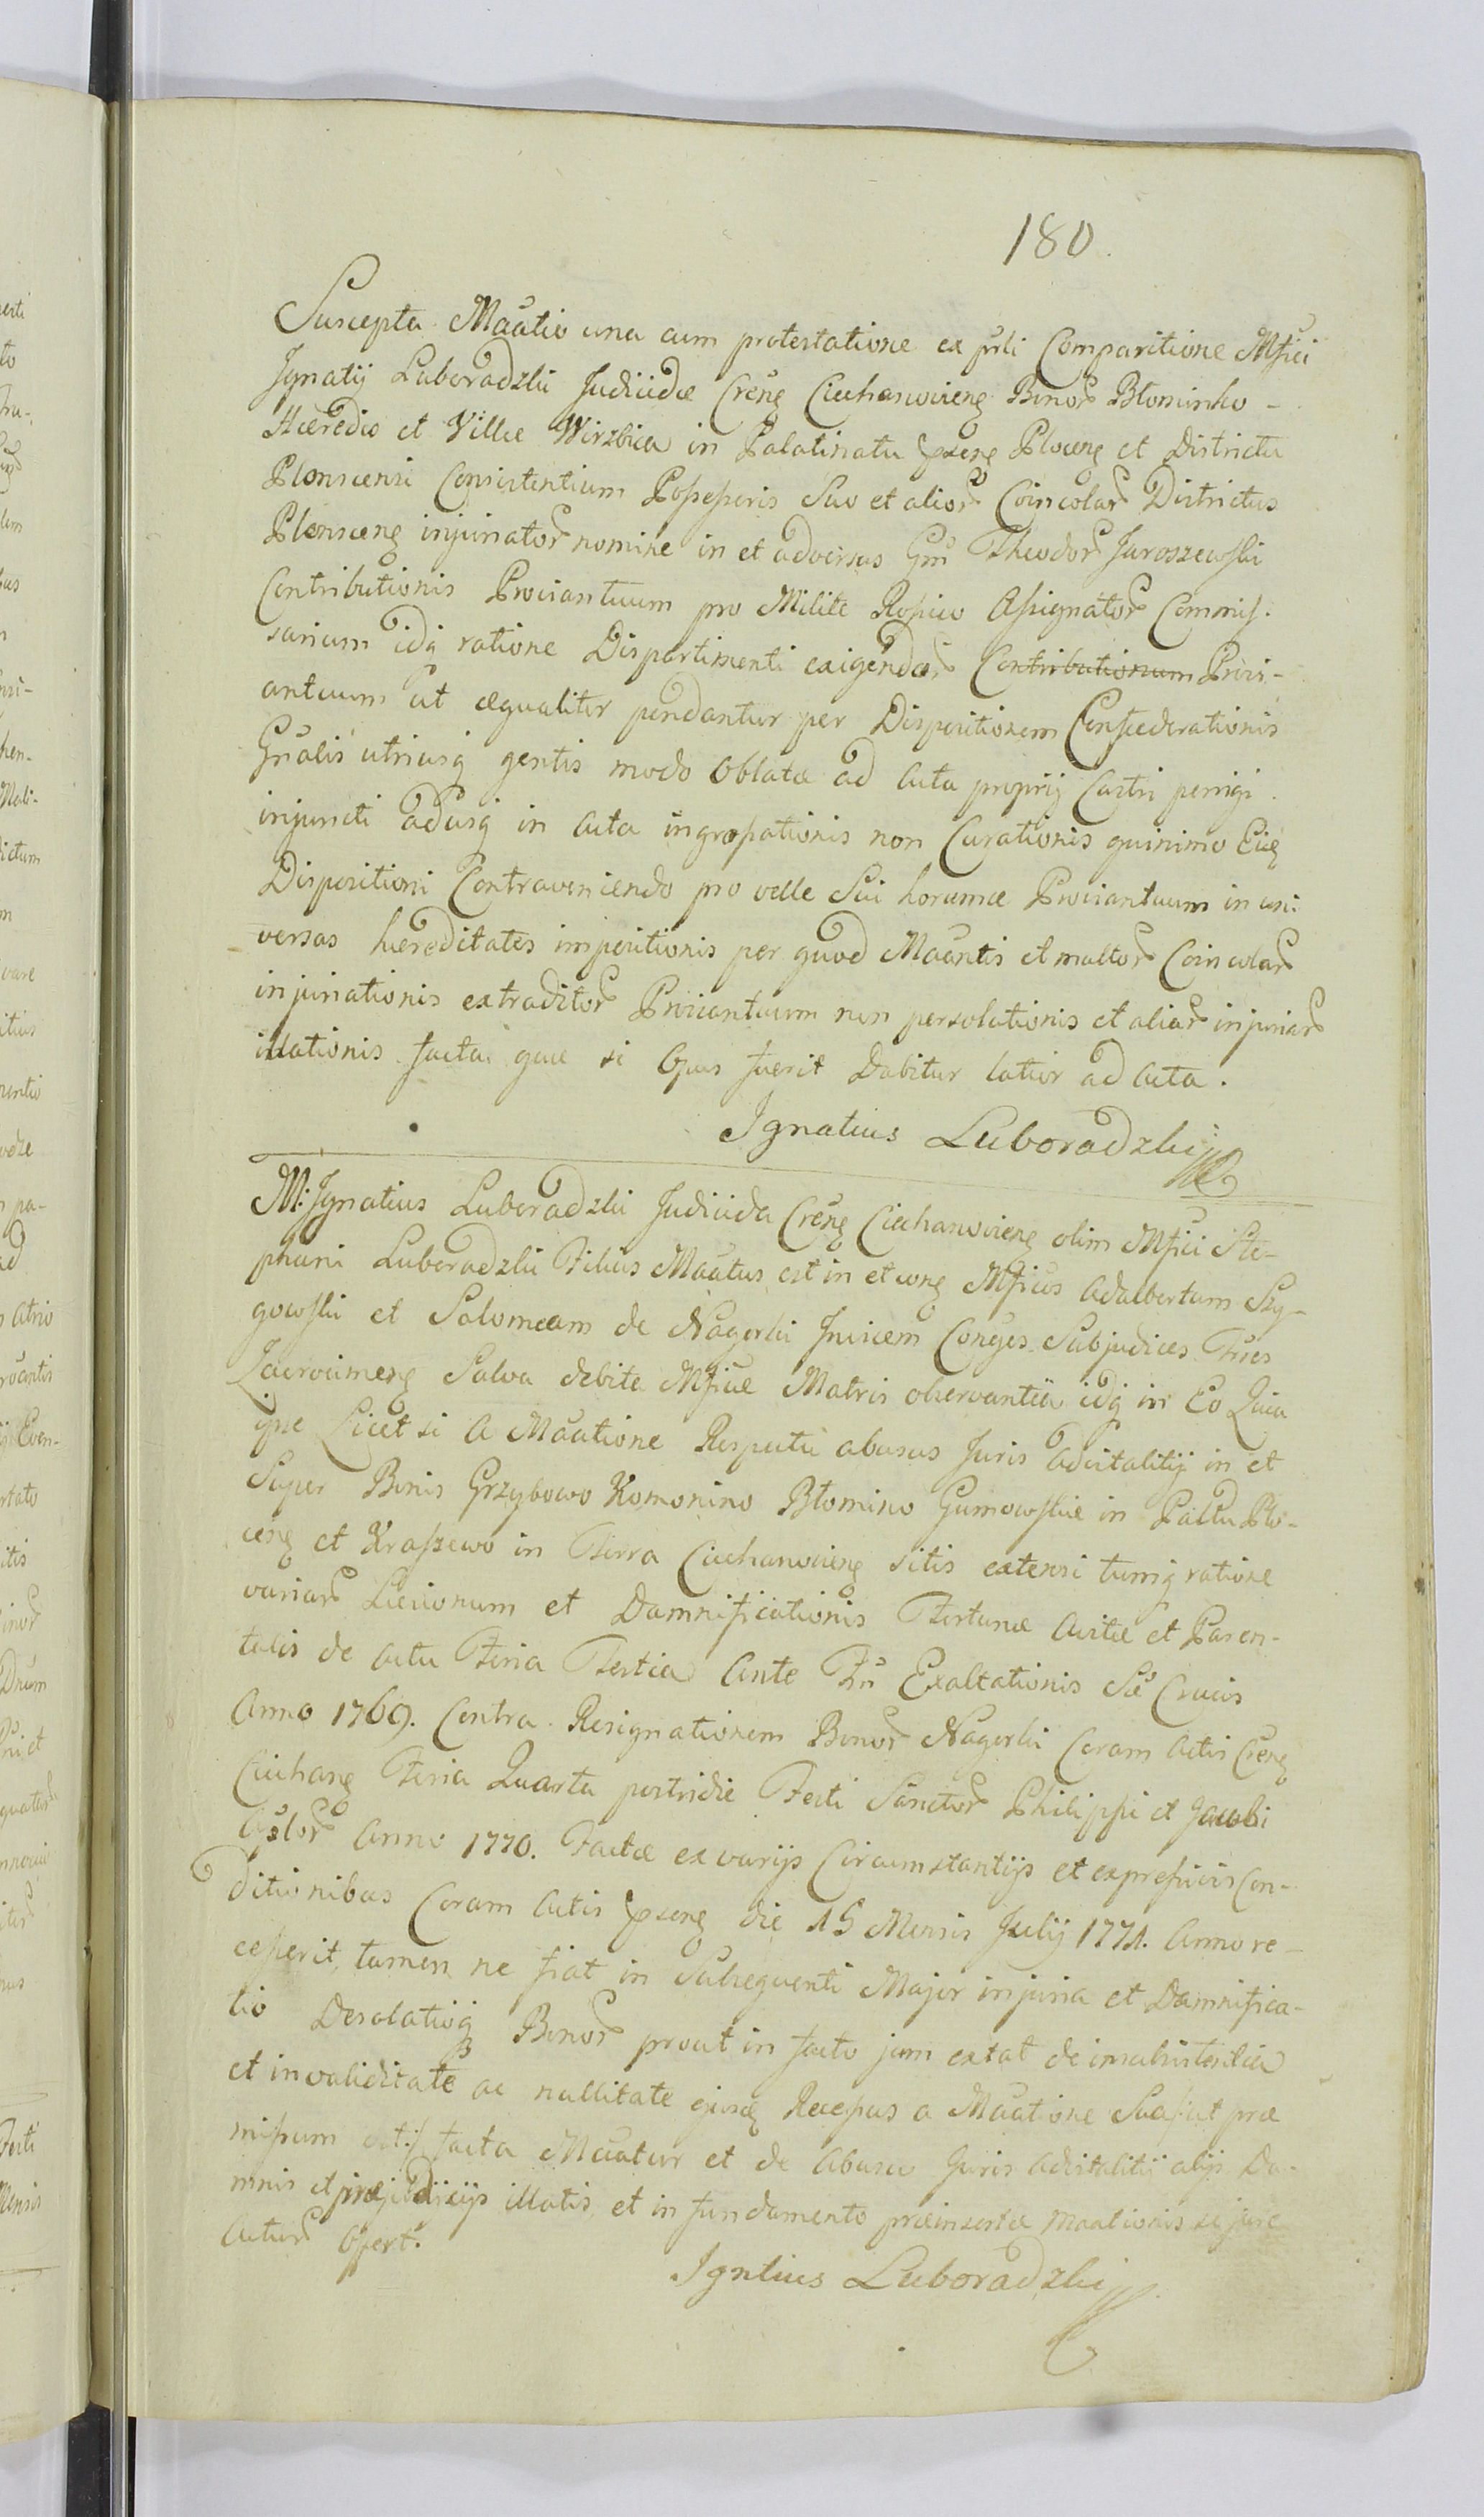 180.
Suscepta Maatio una cum protestatione ex prli Comparitione Mfici
Ignatij Luboradzki Judicidæ Creng Ciechanovieng Bonor Błominko-
Hæredis et Villæ Wirzbica in Palatinatu pseng Ploceng et Districtu
Plonscensi Consistentium Possessoris Suo et alior Coincolar Districtus
Plonsceng injuriator nomine in et adversus Gm Theodor Jaroszewski
Contributionis Proviantuum pro Milite Rossico Assignator Commis-
sarium idq ratione Dispartimenti exigendar Contributionum Provi-
antuum ut æqualiter pendantur per Dispositionem Confœderationis
Gnalis utriusq gentis modo Oblatæ ad Acta proprij Castri perrigi
injuncti adusq in Acta ingrossationis non Curationis quinimo Eidg
Dispositioni Contraveniendo pro velle Sui horumce Proviantuum in uni-
versas hæreditates impositionis per quod Maantis et multor Coincolar
injuriationis extraditor Proviantuum non persolutionis et aliar injuriar
illationis facta quæ si Opus fuerit Dabitur latior ad Acta.
Ignatius Luboradzki
M: Ignatius Luboradzki Judicida Creng Ciechanovieng olim Mfici Ste-
phani Luboradzki Filius Maatus est in et cong Mficos Adalbertum Szy-
gowski et Salomeam de Nagorki Invicem Conges Subjudices Trres
Zacrocimeng Salva debita Mficæ Matris observantia idq in Eo Quia
ipse Licet si a Maatione Respectu abusus Juris Advitalitij in et
Super Bonis Grzybowo Komonino Błomino Gumowskie in Paltu Plo-
ceng et Kraszewo in Terra Ciechanovieng sitis extensi tumq ratione
variar Læsionum et Damnificationis Fortunæ Avitæ et Paren-
talis de Actu Feria Tertia Ante Fm Exaltationis Sæ Crucis
Anno 1769. Contra Resignationem Bonor Nagorki Coram Actis Creng
Ciechang Feria Quarta postridie Festi Sanctor Philippi et Jacobi
Aplor Anno 1770. Factæ ex varijs Circumstantijs et expressivis Con-
ditionibus Coram Actis pseng die 15 Mensis Julij 1771. Anno re-
cesserit, tamen ne fiat in Subsequenti Major injuria et Damnifica-
tio Desolatioq Bonor prout in facto jam extat de insubsistentia
et invaliditate ac nullitate ejusdg Recessus a Maatione Sua /ut præ
missum est:/ facta Maatur et de Abusu Juris Advitalitij alijs Da-
mnis et præjudicijs illatis, et in fundamento præinsertæ Maationis se jure
Actur Offert.
Igntius Luboradzki